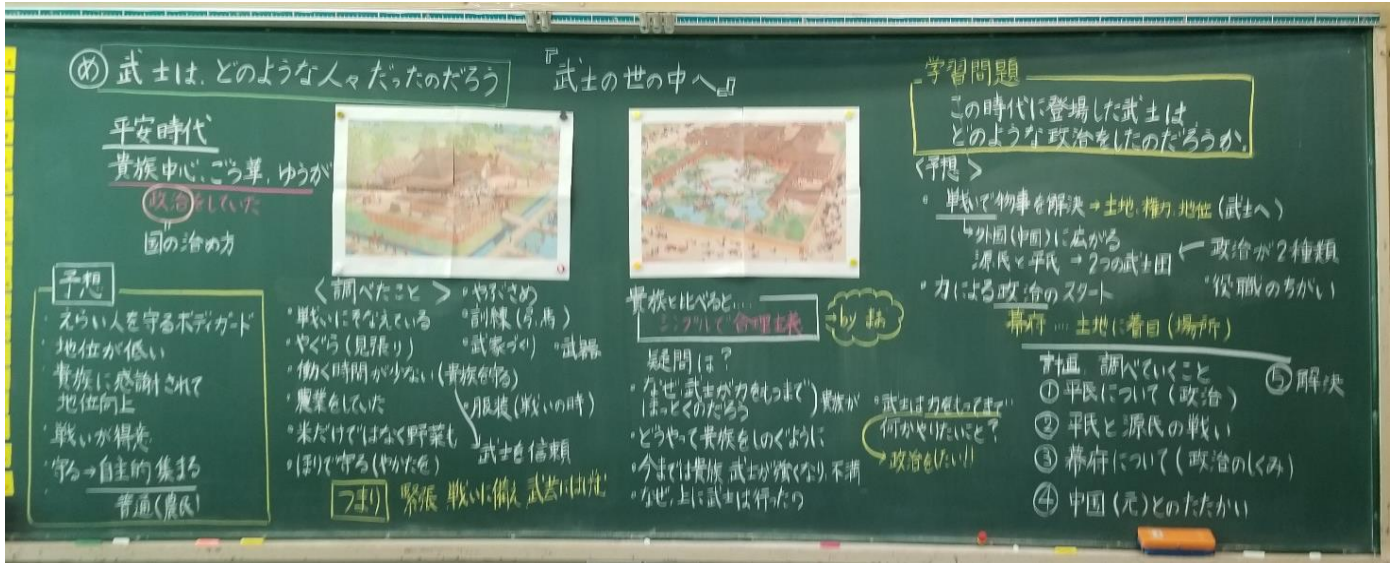 め 武士は、どのような人々だったのだろう
『武士の世の中へ』
平安時代
貴族中心、ごう華、ゆうが
政治をしていた
国の治め方
予想
・えらい人を守るボディガード
・地位が低い
・貴族に感謝されて
地位向上
・戦いが得意
・守る→自主的集まる
普通(農民)
<調べたこと>
・戦いにそなえている
・やぐら(見張り)
・働く時間が少ない(貴族を守る)
・農業をしていた
・米だけではなく野菜も
・ほりで守る(やかたを)
・やぶさめ
・訓練(弓、馬)
・武家づくり ・武器
・服装(戦いの時)
武士を信頼
つまり 緊張 戦いに備え 武芸にはげむ
貴族と比べると…
シンプルで合理主義
by まぁ
疑問は?
・なぜ武士が力をもつまで
ほっとくのだろう
貴族が
・どうやって貴族をしのぐように
・今までは貴族 武士が強くなり、不満
・なぜ、上に武士は行ったの
・武士は力をもってまで…
何かやりたいこと?
→政治をしたい!!
学習問題
この時代に登場した武士は、
どのような政治をしたのだろうか。
<予想>
・戦いで物事を解決→土地、権力、地位(武士へ)
→外国(中国)に広がる
源氏と平氏→2つの武士団
政治が2種類
・役職のちがい
・力による政治のスタート
幕府…土地に着目(場所)
計画 調べていくこと
① 平氏について(政治)
② 平氏と源氏の戦い
③ 幕府について(政治のしくみ)
④ 中国(元)とのたたかい
⑤ 解決